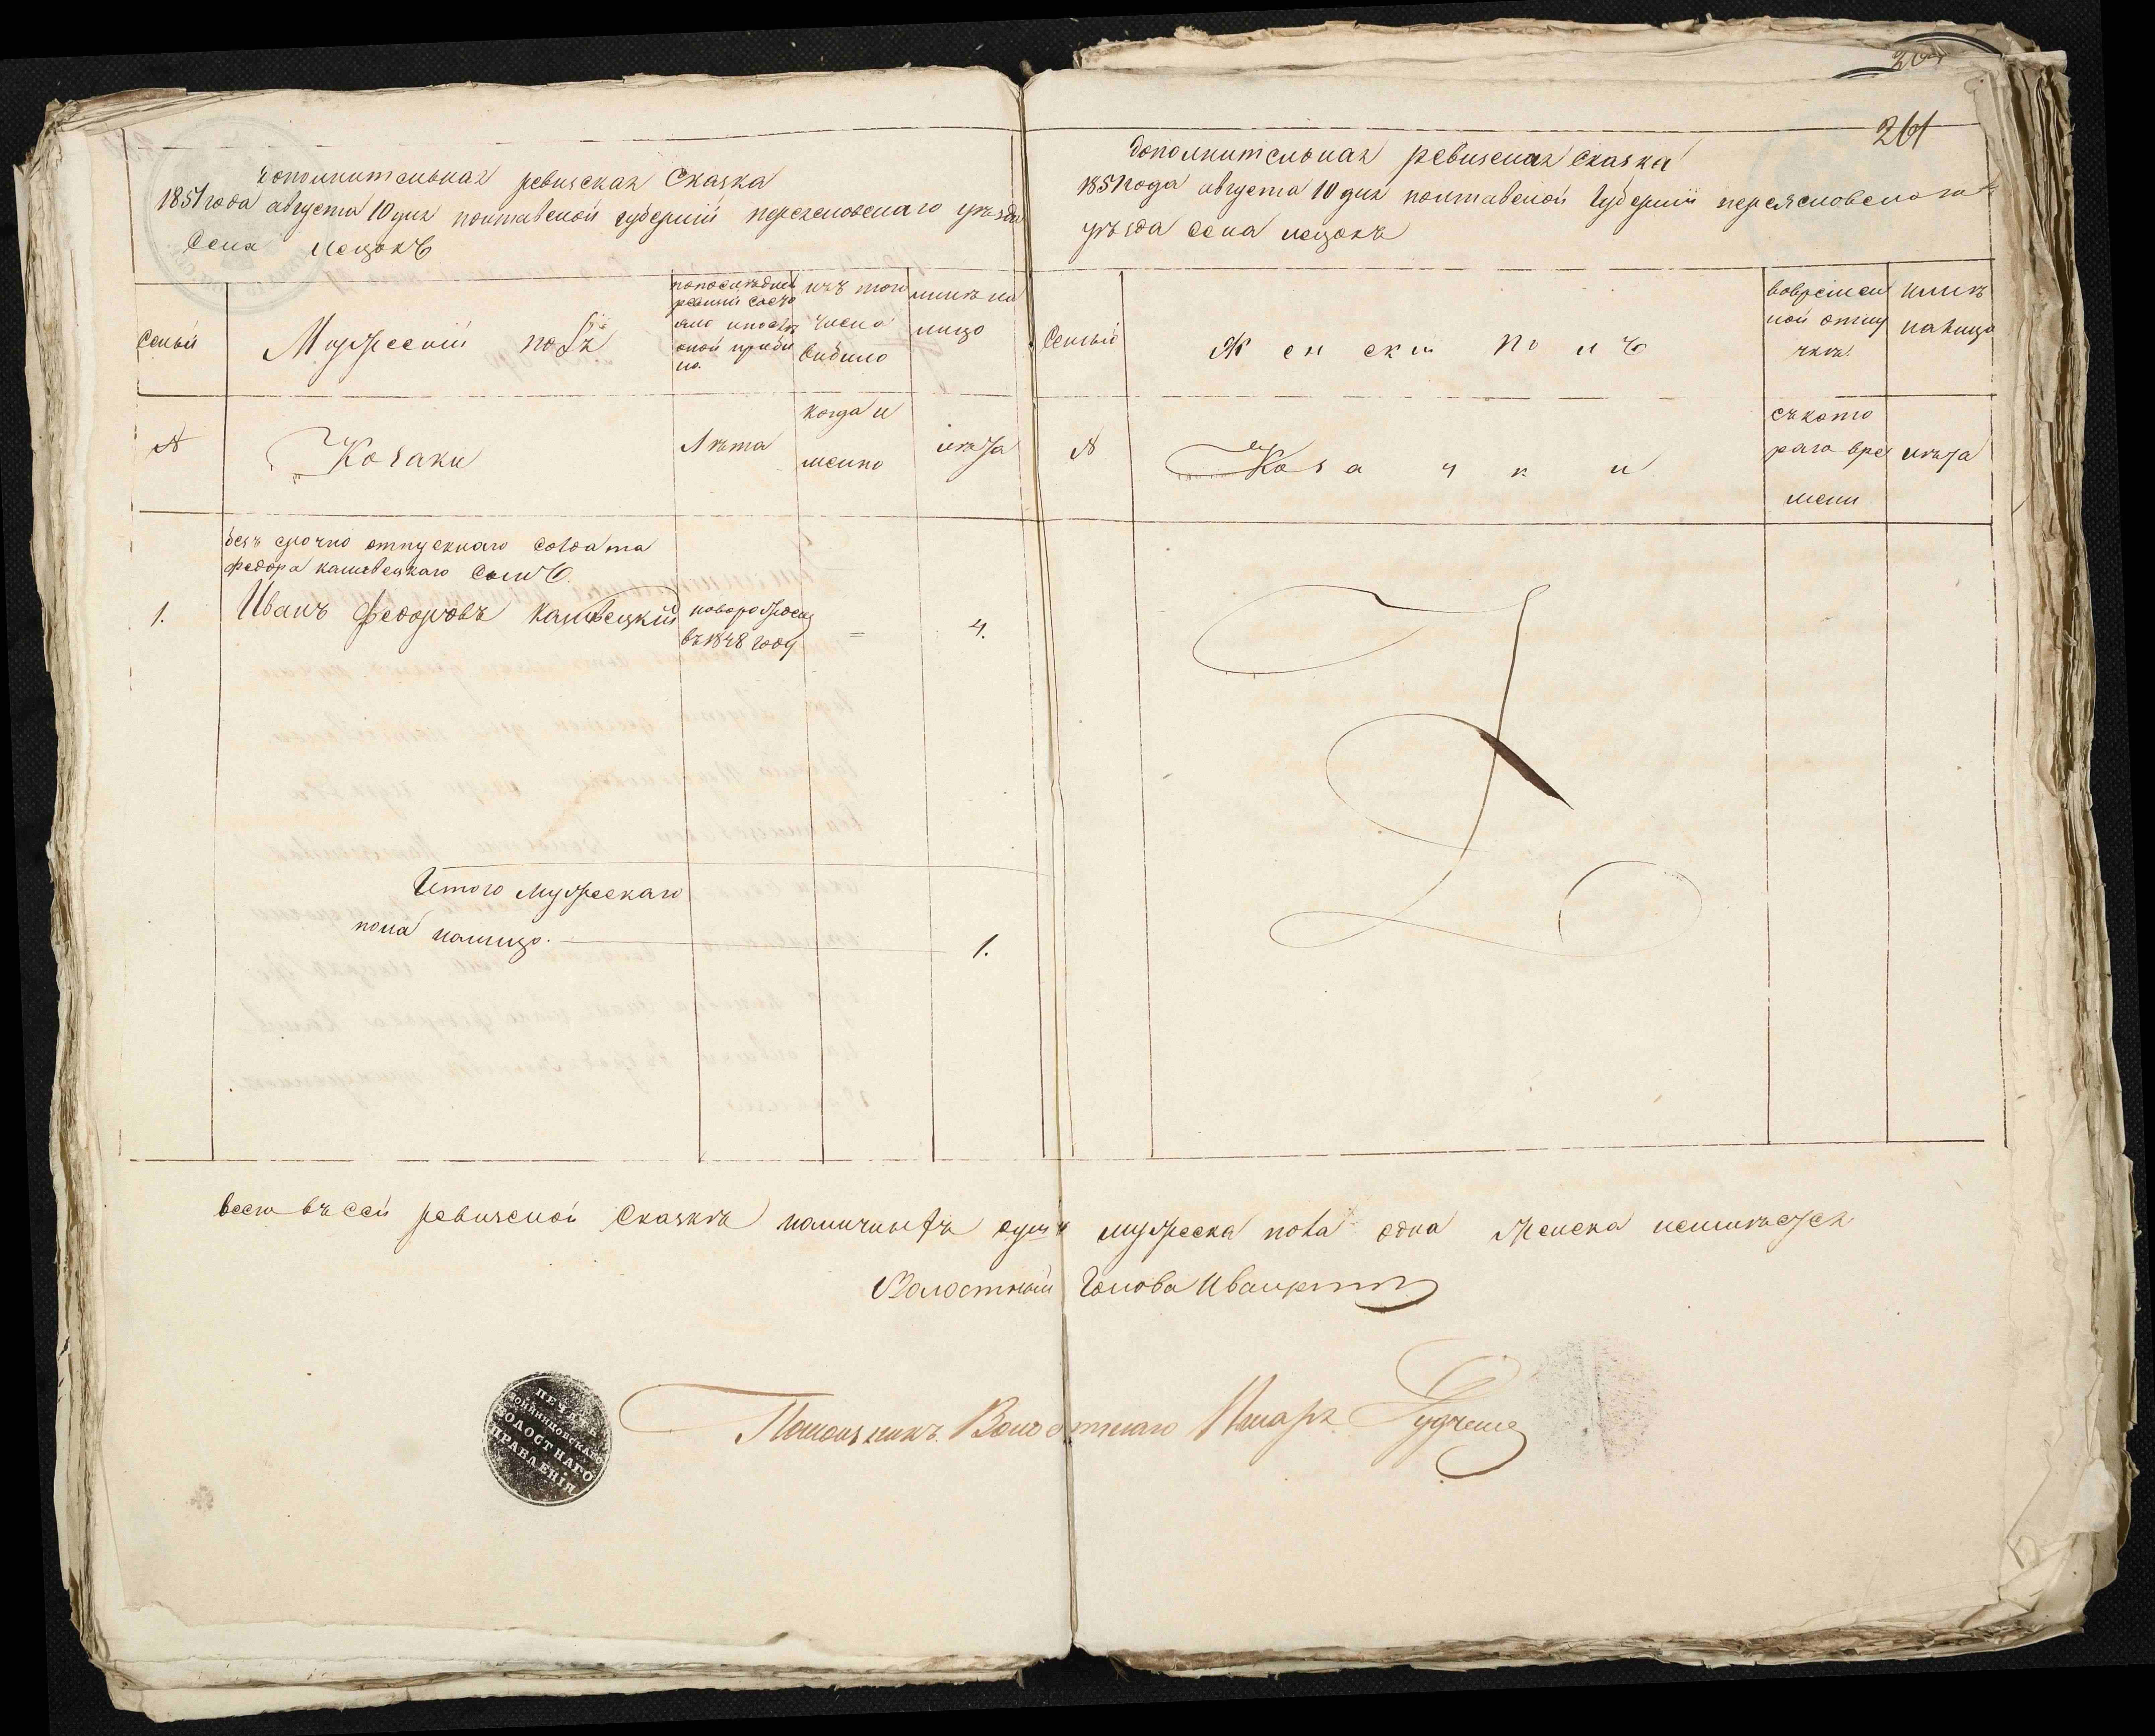 261
дополнительная ревизская Сказка
1851 года августа 10 дня полтавской губернии переяславскаго уезда
Села мецокъ
Семьи
Мужеский полъ
по последней ревизии состояло и после оной прибыло
изъ того числа выбыло
ныне на лицо
№
Козаки
Лета
когда и менно
лета
безъ срочно отпускнаго солдата
федора каливецкаго Сынъ
1.
Иванъ Федоровъ
новорожден
въ 1848 году
=
4.
Итого Мужескаго
пола налицо.
1.
дополнительная ревизская сказка
1851 года августа 10 дня полтавской Губернии
уезда села мецокъ
Семьи
Женски полъ
во временной отлучке
ныне налицо
№
Козачки
съ котораго времени
лета
всего въ сей ревизской Сказке наличныхъ душъ мужеска пола одна женска
Волостный Голова Иван
Помощникъ Волостнаго Писаря
ПЕЧАТЬ
ВОЛОСТНАГО
ПРАВЛЕНІЯ